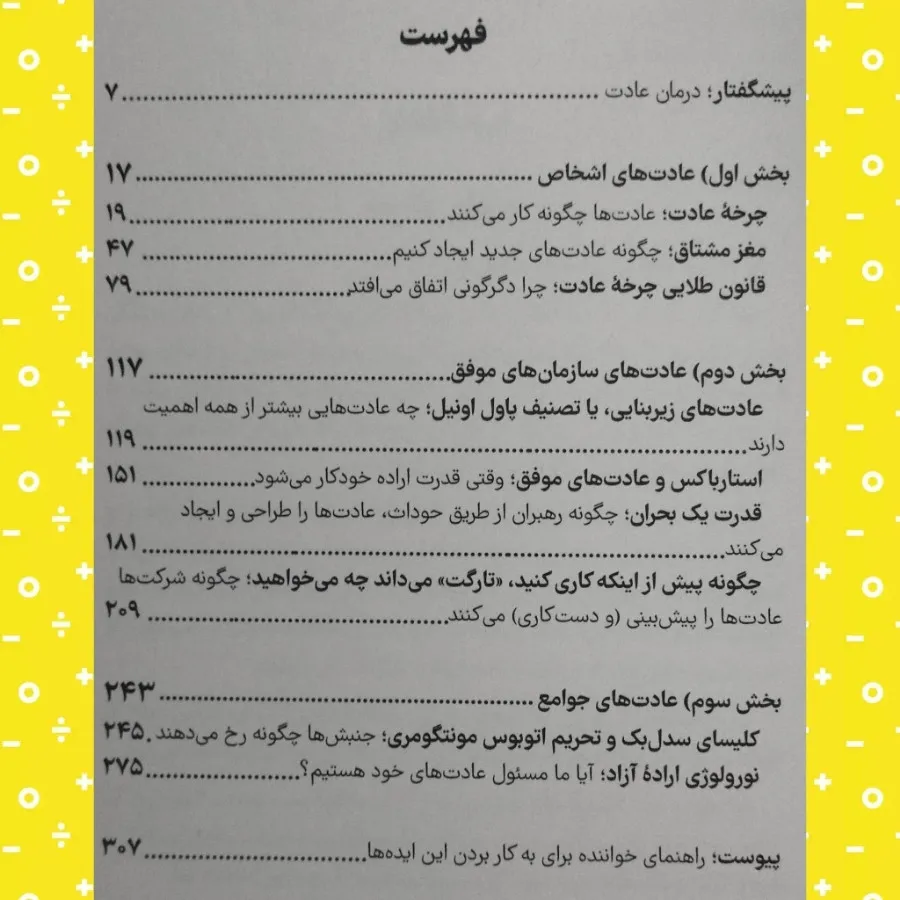 فهرست
پیشگفتار؛ درمان عادت ........ ۷
بخش اول) عادت‌های اشخاص ........ ۱۷
چرخهٔ عادت؛ عادت‌ها چگونه کار می‌کنند ........ ۱۹
مغز مشتاق؛ چگونه عادت‌های جدید ایجاد کنیم ........ ۴۷
قانون طلایی چرخهٔ عادت؛ چرا دگرگونی اتفاق می‌افتد ........ ۷۹
بخش دوم) عادت‌های سازمان‌های موفق ........ ۱۱۷
عادت‌های زیربنایی، یا تصنیف پاول اونیل؛ چه عادت‌هایی بیشتر از همه اهمیت
دارند ........ ۱۱۹
استارباکس و عادت‌های موفق؛ وقتی قدرت اراده خودکار می‌شود ........ ۱۵۱
قدرت یک بحران؛ چگونه رهبران از طریق حوداث، عادت‌ها را طراحی و ایجاد
می‌کنند ........ ۱۸۱
چگونه پیش از اینکه کاری کنید، «تارگت» می‌داند چه می‌خواهید؛ چگونه شرکت‌ها
عادت‌ها را پیش‌بینی (و دست‌کاری) می‌کنند ........ ۲۰۹
بخش سوم) عادت‌های جوامع ........ ۲۴۳
کلیسای سدل‌بک و تحریم اتوبوس مونتگومری؛ جنبش‌ها چگونه رخ می‌دهند . ۲۴۵
نورولوژی ارادهٔ آزاد؛ آیا ما مسئول عادت‌های خود هستیم؟ ........ ۲۷۵
پیوست؛ راهنمای خواننده برای به کار بردن این ایده‌ها ........ ۳۰۷